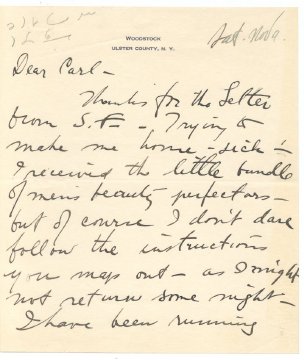 WOODSTOCK
ULSTER COUNTY, N. Y.
Sat. Nov 9.
Dear Carl –
Thanks for the Letter
from S.F. – Trying to
make me home-sick –
I received the little bundle
of men's beauty perfectors –
but of course I don't dare
follow the instructions
you map out – as I might
not return some night –
I have been running